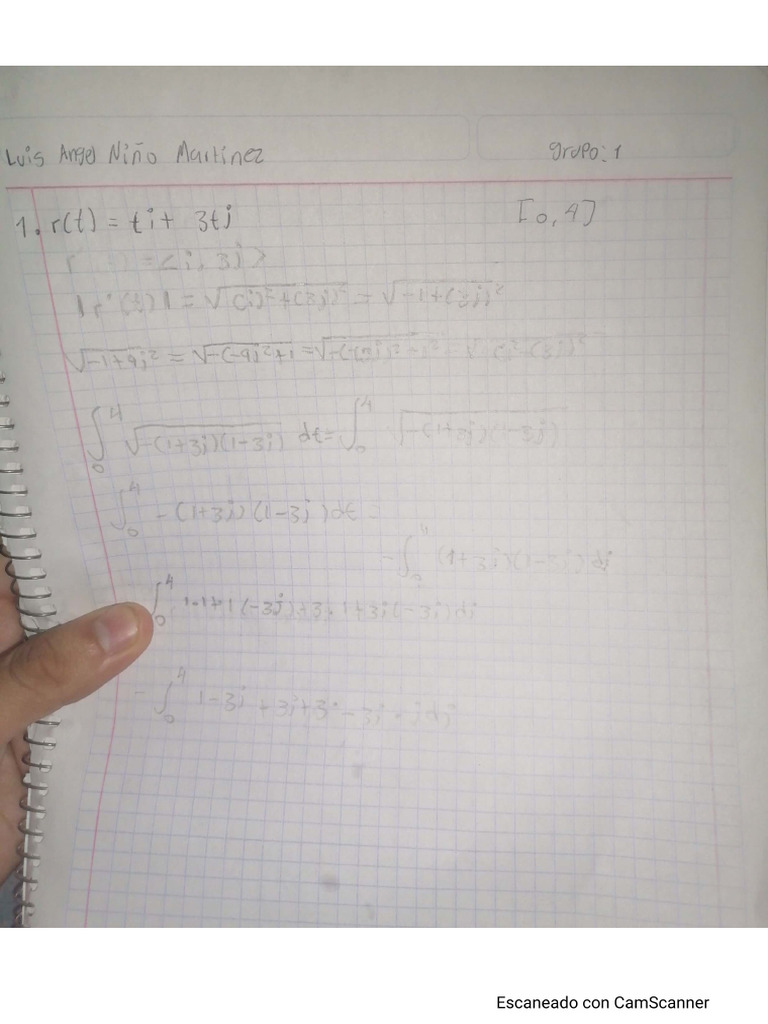 Luis Angel Niño Martinez grupo: 1
1. r(t) = ti + 3tj [0, 4]
= <i, 3j>
|r'(t)| = √(i)²+(3j)² = √-1+(3j)²
√-1+9j² = √-(-9j²+1 = √-(-(3j)²
∫₀⁴ √-(1+3j)(1-3j) dt = ∫₀⁴ √-(1+3j)(1-3j)
∫₀⁴ -(1+3j)(1-3j)dt =
-∫₀⁴ (1+3j)(1-3j)dj
∫₀⁴ 1·1+1(-3j)+3j·1+3j(-3j)dj
-∫₀⁴ 1-3j+3j+3j-3j·jdj
Escaneado con CamScanner